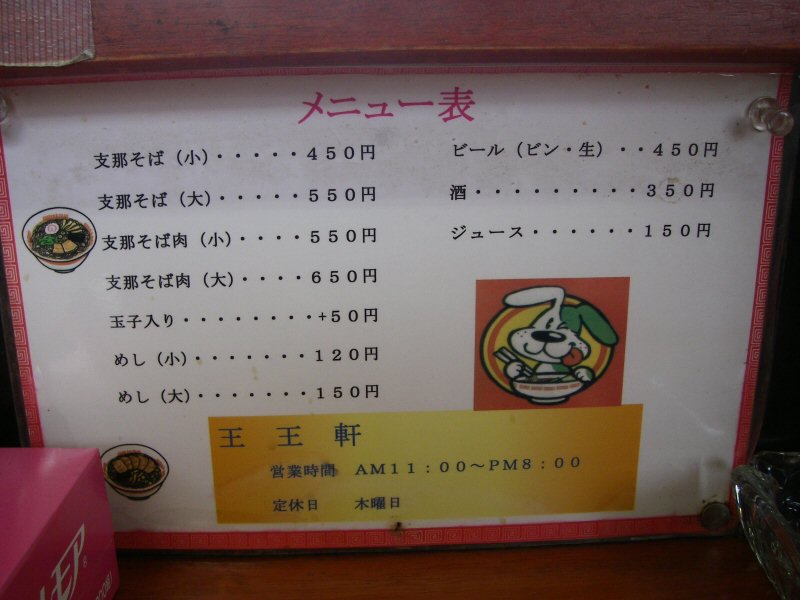 メニュー表
支那そば（小）・・・・・４５０円
支那そば（大）・・・・・５５０円
支那そば肉（小）・・・・５５０円
支那そば肉（大）・・・・６５０円
玉子入り・・・・・・・・+５０円
めし（小）・・・・・・・１２０円
めし（大）・・・・・・・１５０円
ビール（ビン・生）・・４５０円
酒・・・・・・・・・３５０円
ジュース・・・・・・１５０円
王王軒
営業時間　ＡＭ１１：００～ＰＭ８：００
定休日　木曜日